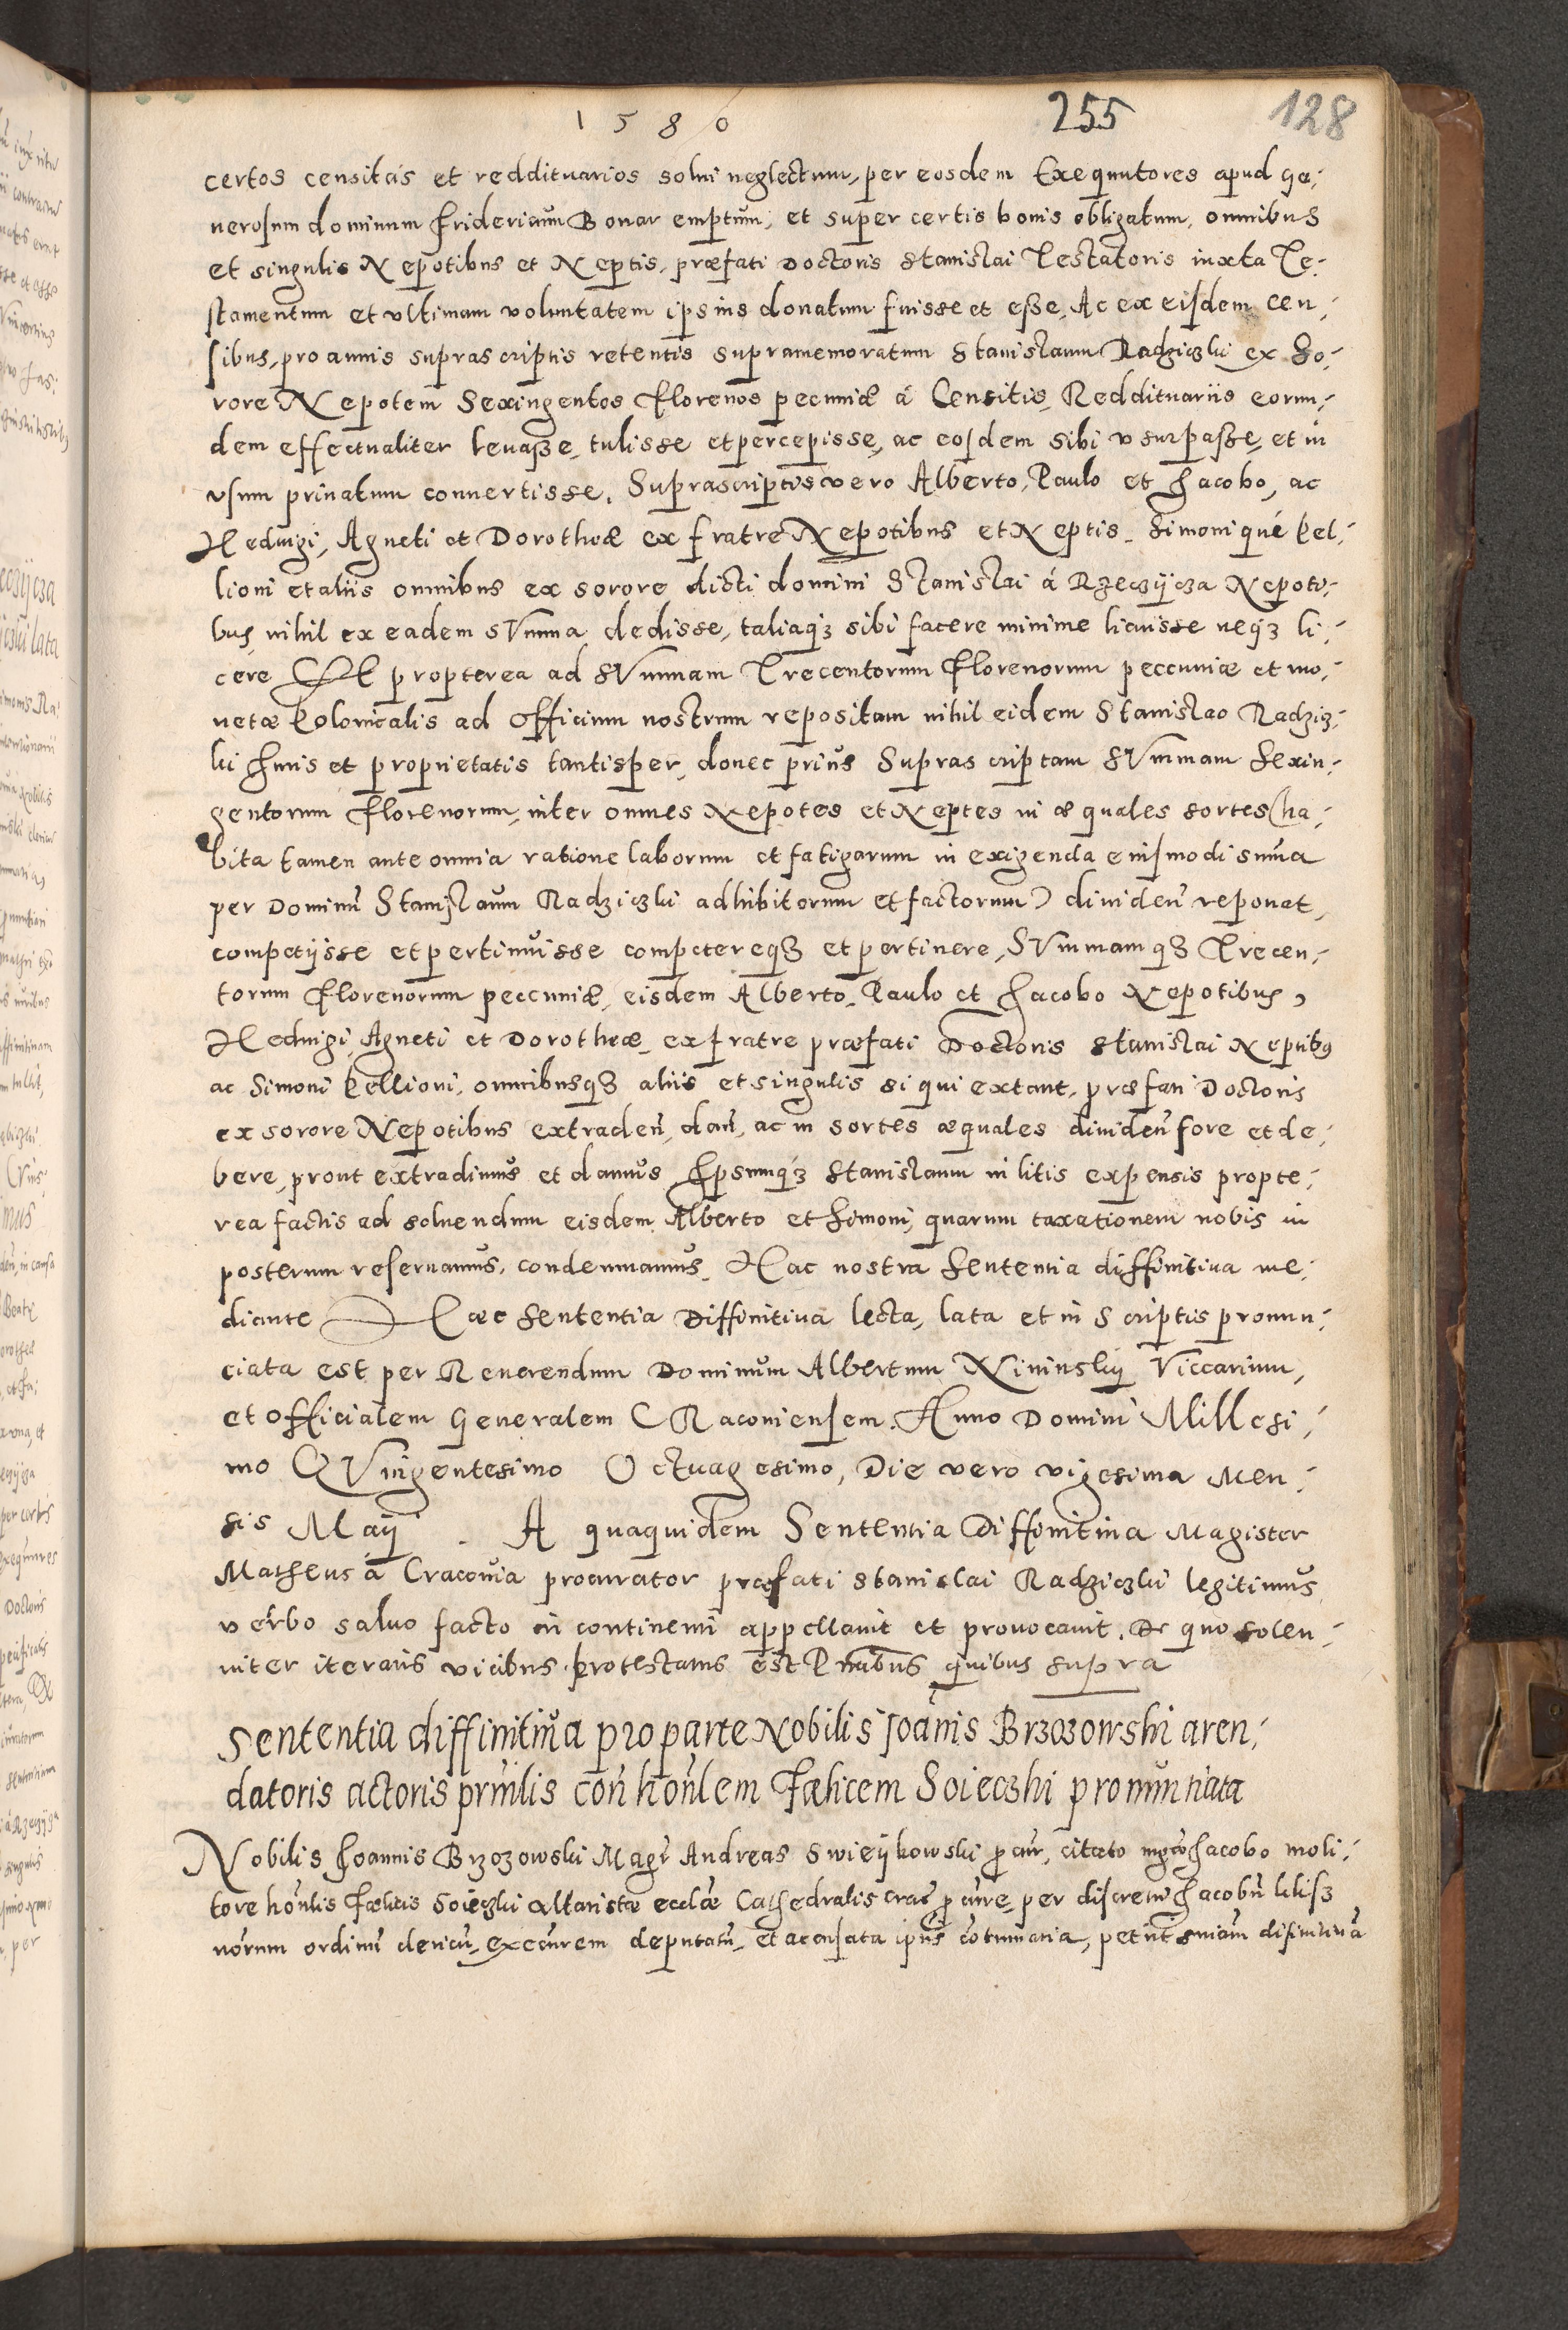 1580
255
128
certos censitas et reddituarios solui neglectum, per eosdem Exequutores apud ge-
nerosum dominum Fridericum Bonar emptum, et super certis bonis obligatum, omnibus
et singulis Nepotibus et Neptis, præfati Doctoris Stanislai Testatoris iuxta Te-
stamentum et vltimam voluntatem ipsius donatum fuisse et esse, Ac ex eisdem cen-
sibus, pro annis suprascriptis retentis supramemoratum Stanislaum Radziczki ex so-
rore Nepotem Sexingentos Florenos pecuniæ á Censitis, Reddituariis eorun-
dem effectualiter leuasse, tulisse et percepisse, ac eosdem sibi vsurpasse, et in
vsum priuatum conuertisse. Suprascriptis vero Alberto, Paulo et Jacobo, ac
Heduigi, Agneti et Dorotheæ ex fratre Nepotibus et Neptis, Simonique Pel-
lioni et aliis omnibus ex sorore dicti domini Stanislai á Rzeczijcza Nepoti-
bus nihil ex eadem sVmma dedisse, taliaq3 sibi facere minime licuisse neq3 li-
cere Et propterea ad sVmmam Trecentorum Florenorum peccuniæ et mo-
netæ Polonicalis ad Officium nostrum repositam nihil eidem Stanislao Radzicz-
ki Juris et proprietatis tantisper, donec prius Suprascriptam SVmmam Sexin-
gentorum Florenorum, inter omnes Nepotes et Neptes in æquales sortes (ha-
bita tamen ante omnia ratione laborum et fatigarum in exigenda eiusmodi suma
per Dominu Stanislaum Radziczki adhibitorum et factorum) diuiden reponat,
competijsse et pertinuisse competereq3 et pertinere, SVmmamq3 Trecen-
torum Florenorum peccuniæ, eisdem Alberto, Paulo et Jacobo Nepotibus,
Heduigi, Agneti et Dorotheæ, ex fratre præfati Doctoris Stanislai Neptibus
ac Simoni Pellioni, omnibusq3 aliis et singulis si qui extant, præfati Doctoris
ex sorore Nepotibus extraden, dan, ac in sortes æquales diuiden fore et de-
bere, prout extradimus et damus, Ipsumq3 Stanislaum in litis expensis propte-
rea factis ad soluendum eisdem Alberto et Simoni, quarum taxationem nobis in
posterum reseruamus, condemnamus, Hac nostra Sententia diffinitiua me-
diante Hæc Sententia Diffinitiua lecta, lata et in Scriptis pronun-
ciata est per Reuerendum Dominum Albertum Nininskij Viccarium,
et Officialem Generalem CRaconiensem. Anno Domini Millesi-
mo QVingentesimo Octuagesimo, Die vero vigesima Men-
sis Maij. A quaquidem Sententia Diffinitiua Magister
Matheus á Cracouia procurator præfati Stanislai Radziczki legitimus,
verbo saluo facto in continenti appellauit et prouocauit. De quo solen-
niter iteratis vicibus protestatus est Pntibus quibus supra
Sententia diffinitiua pro parte Nobilis Joanis Brzozowski aren-
datoris actoris prncilis con honlem Fælicem Soieczki pronunciata
Nobilis Joannis Brzozowski Magr Andreas Swieijkowski pcur, citato mgro Jacobo moli-
tore honlis Fælicis Soieczki altaristæ ecclæ Cathedralis Crac pcure, per discretum Jacobu
norum ordinu clericu, execurem deputatu, et accusata ipius cotumacia, petiit sniam difinitiua